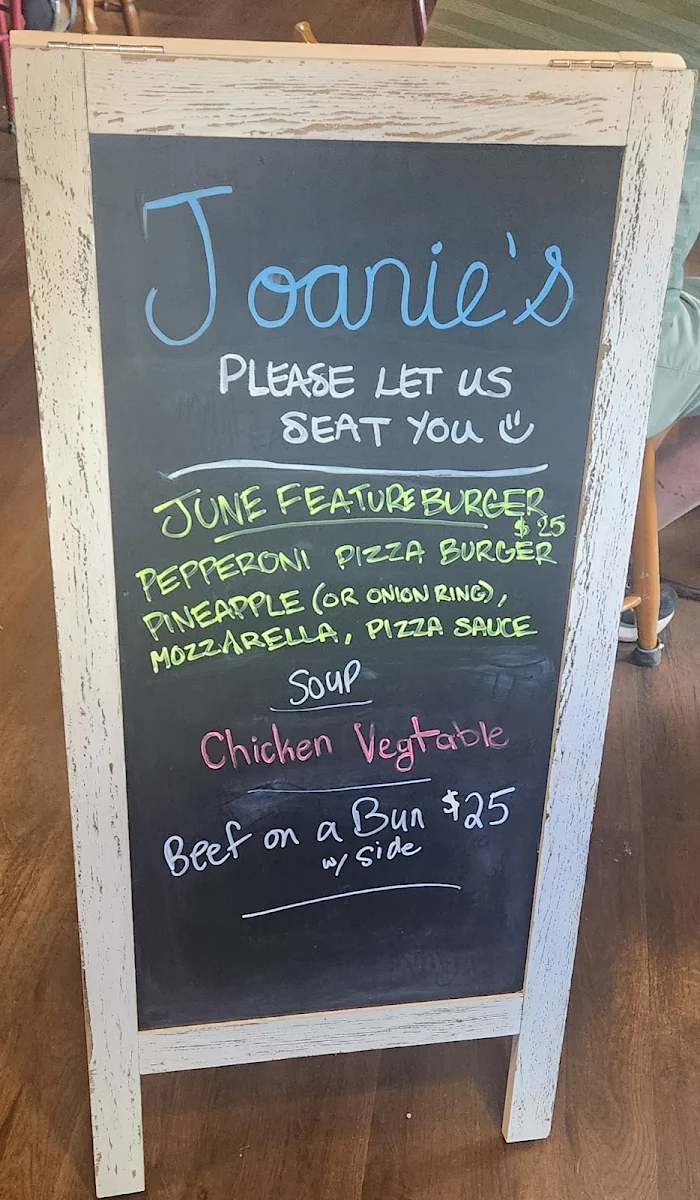 Joanie's
PLEASE LET US
SEAT YOU
JUNE FEATURE BURGER
$25
PEPPERONI PIZZA BURGER
PINEAPPLE (OR ONION RING),
MOZZARELLA, PIZZA SAUCE
SOUP
Chicken Vegtable
Beef on a Bun $25
w/ side